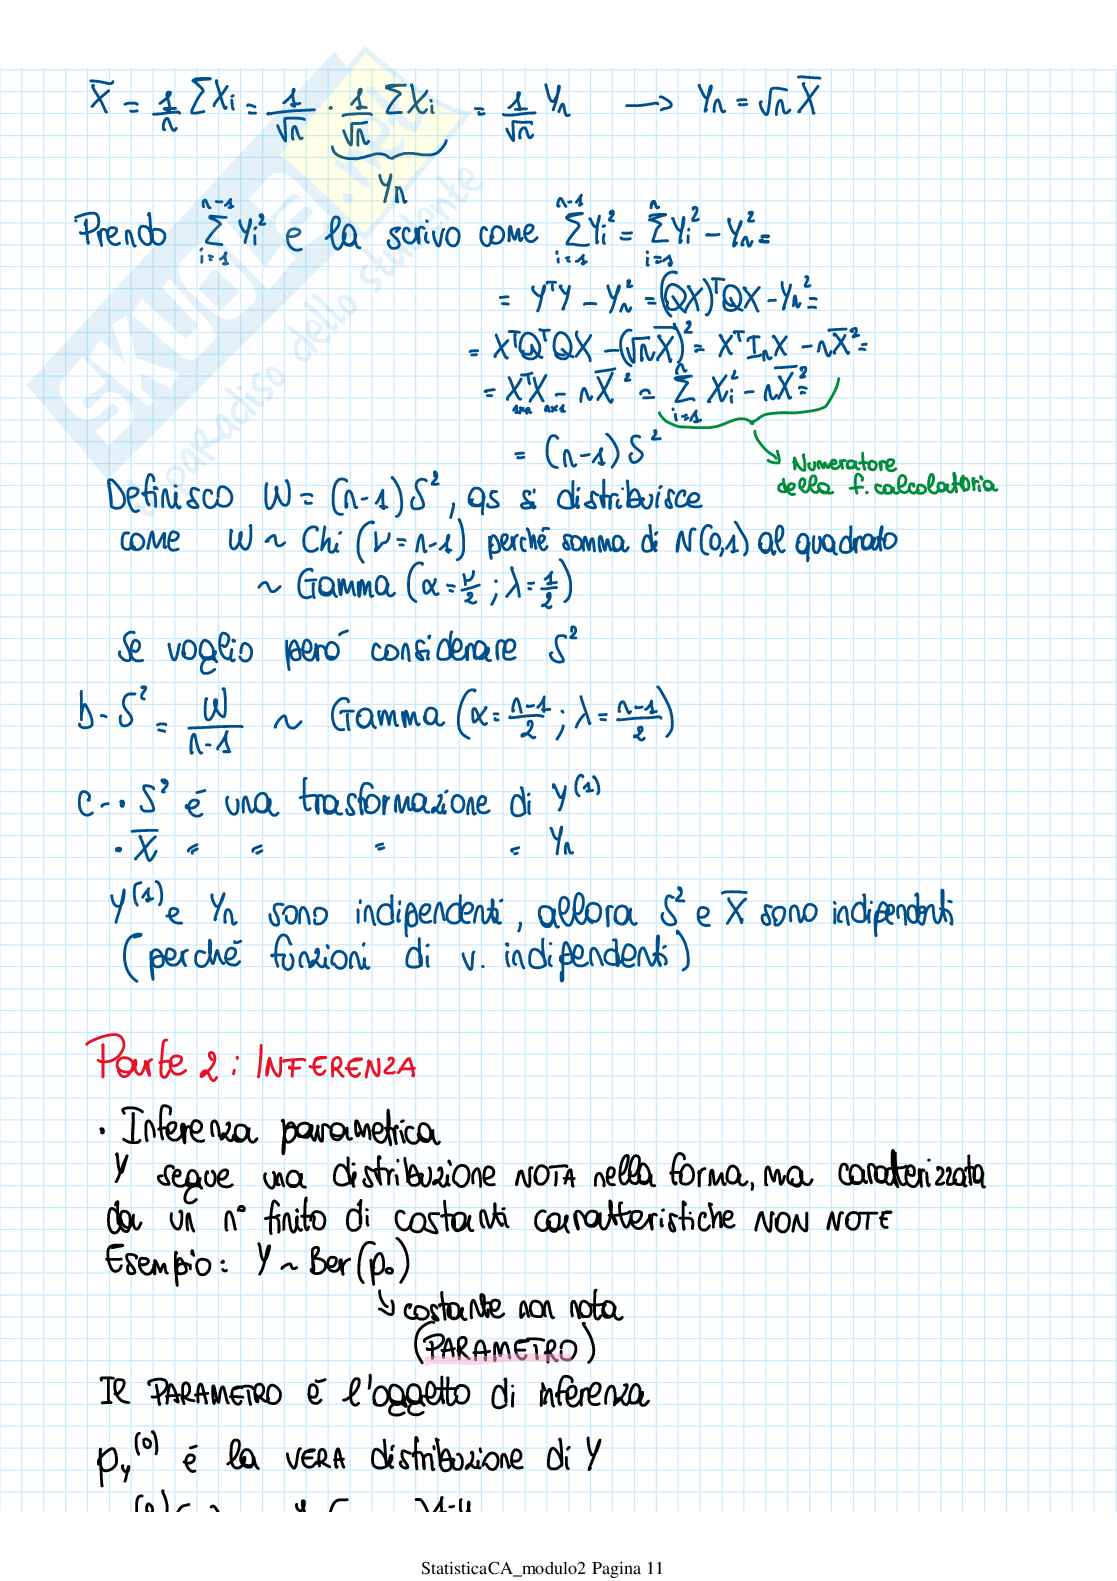 X̄ = 1/n ΣXi = 1/√n · 1/√n ΣXi = 1/√n Yn → Yn = √n X̄
Yn
Prendo Σ_{i=1}^{n-1} Yi² e la scrivo come Σ_{i=1}^{n-1} Yi² = Σ_{i=1}^{n} Yi² - Yn² =
= YᵀY - Yn² = (QX)ᵀQX - Yn² =
= XᵀQᵀQX - (√n X̄)² = XᵀInX - nX̄² =
= XᵀX - nX̄² = Σ_{i=1}^{n} Xi² - nX̄² =
1×n n×1
= (n-1) S²
Numeratore
della f. calcolatoria
Definisco W = (n-1) S², qs si distribuisce
come W ~ Chi (ν = n-1) perché somma di N(0,1) al quadrato
~ Gamma (α = ν/2 ; λ = 1/2)
Se voglio però considerare S²
b- S² = W/(n-1) ~ Gamma (α = (n-1)/2 ; λ = (n-1)/2)
c- · S² é una trasformazione di Y^(1)
· X̄ " " " " Yn
Y^(1) e Yn sono indipendenti, allora S² e X̄ sono indipendenti
(perché funzioni di v. indipendenti)
Parte 2 : INFERENZA
· Inferenza parametrica
Y segue una distribuzione NOTA nella forma, ma caratterizzata
da un n° finito di costanti caratteristiche NON NOTE
Esempio: Y ~ Ber(p₀)
↳ costante non nota
(PARAMETRO)
Il PARAMETRO é l'oggetto di inferenza
p_Y^(0) é la VERA distribuzione di Y
StatisticaCA_modulo2 Pagina 11
SKUOLA.net
il paradiso dello studente